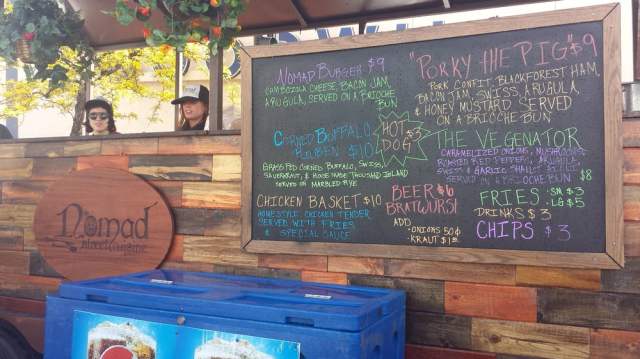 Nomad
Street Cuisine
NOMAD BURGER $9
CAMBOZOLA CHEESE, BACON JAM,
ARUGULA, SERVED ON A BRIOCHE
BUN
CORNED BUFFALO
REUBEN $10
GRASS FED CORNED BUFFALO, SWISS,
SAUERKRAUT, & HOUSE MADE THOUSAND ISLAND
SERVED ON MARBLED RYE
CHICKEN BASKET $10
HOMESTYLE CHICKEN TENDER
SERVED WITH FRIES
& SPECIAL SAUCE
HOT
DOG $3
BEER $6
BRATWURST
ADD
- ONIONS 50¢
- KRAUT $1
"PORKY THE PIG" $9
PORK CONFIT, BLACKFOREST HAM,
BACON JAM, SWISS, ARUGULA,
& HONEY MUSTARD SERVED
ON A BRIOCHE BUN
THE VEGENATOR
CARAMELIZED ONIONS, MUSHROOMS
ROASTED RED PEPPERS, ARUGULA,
SWISS & GARLIC
SERVED ON A BRIOCHE BUN $8
FRIES - SM $3
- LG $5
DRINKS $3
CHIPS $3